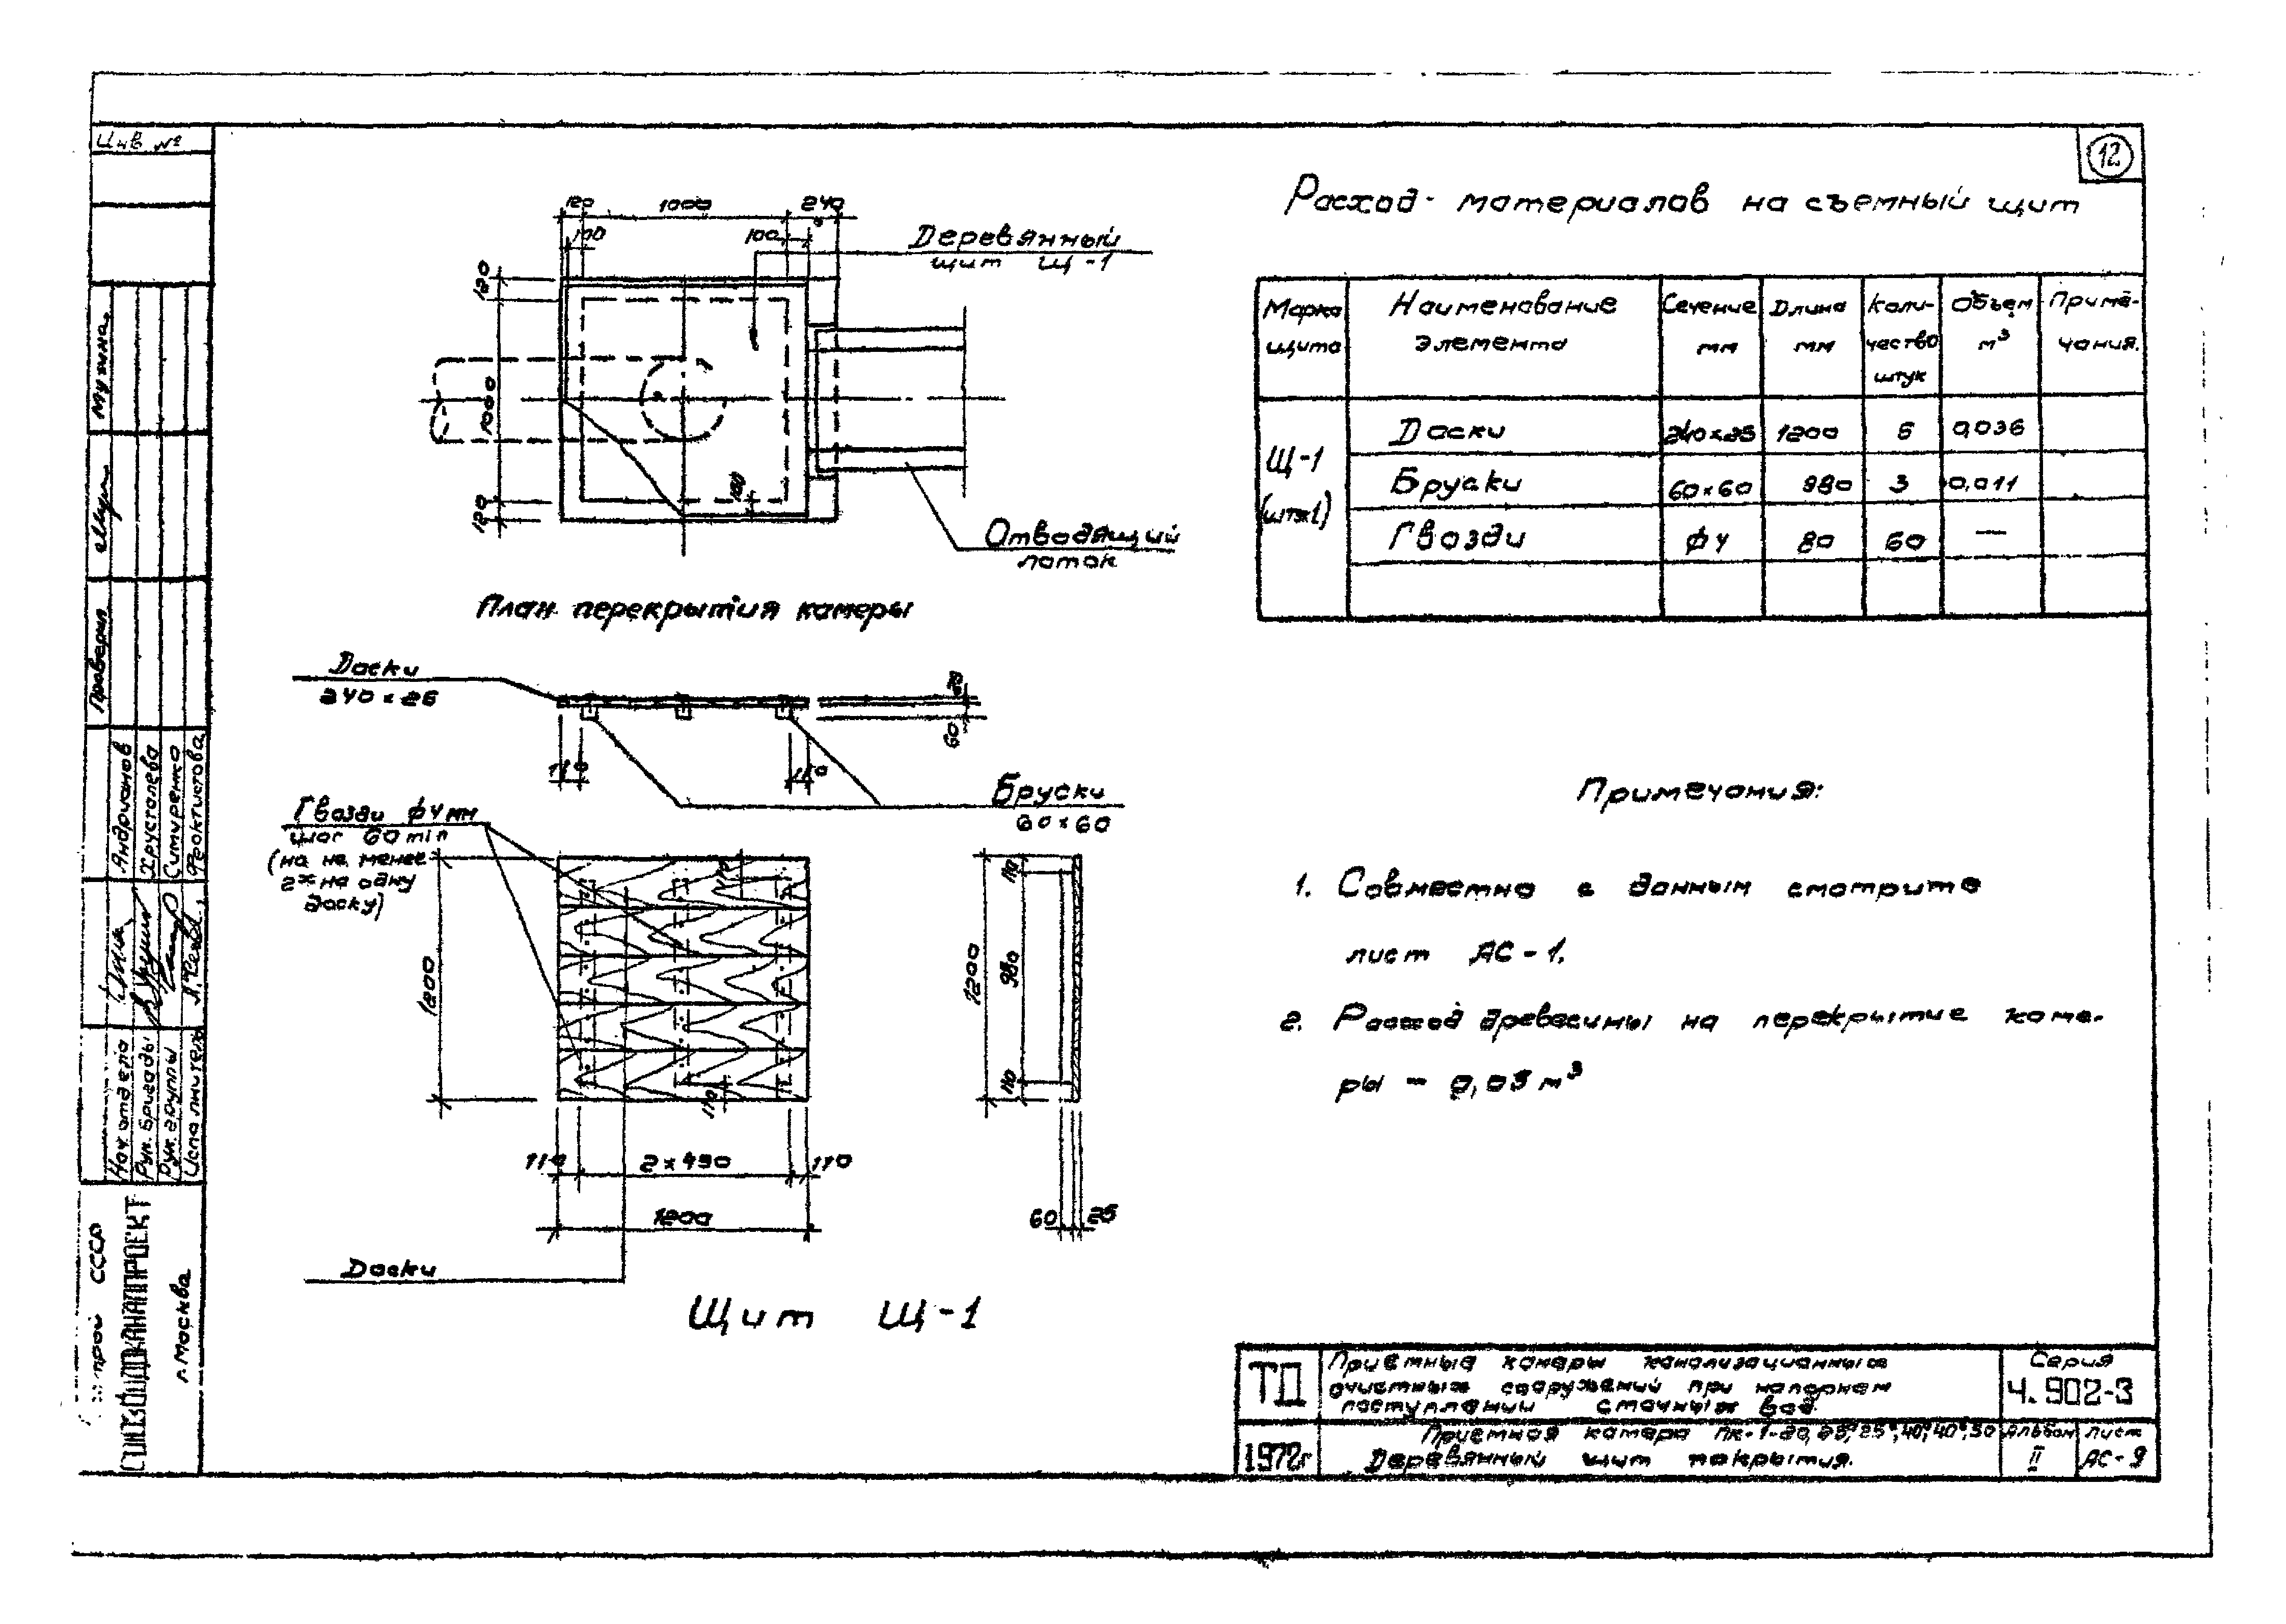 Инв №
12
120 1000 240
100 100
Деревянный
щит Щ-1
120
1000
120
100
Отводящий
лоток
План перекрытия камеры
Доски
240×25
60
110 110
Бруски
60×60
Гвозди ф4мм
шаг 60 min
(но не менее
2х на одну
доску)
1200
110
110
110 2×490 110
1200
Доски
1200
110
980
110
60 25
Щит Щ-1
Расход материалов на съемный щит
Марка щита Наименование элемента Сечение мм Длина мм Коли-чество штук Объем м³ Приме-чания.
Щ-1 (шт-1)
Доски 240×25 1200 5 0,036
Бруски 60×60 980 3 0,011
Гвозди ф4 80 60 —
Примечания:
1. Совместно с данным смотрите
лист АС-1.
2. Расход древесины на перекрытие каме-
ры - 0,05 м³
ТД
Приемные камеры канализационных
очистных сооружений при напорном
поступлении сточных вод.
Серия
4.902-3
1972г
Приемная камера ПК-1-20,
Деревянный щит покрытия.
Альбом
II
Лист
АС-9
Проверил
Андрианов
Хрусталева
Ситуренко
Феоктистова
Нач. отдела
Рук. бригады
Рук. группы
Исполнитель
СССР
СОЮЗВОДОКАНАЛПРОЕКТ
г. Москва